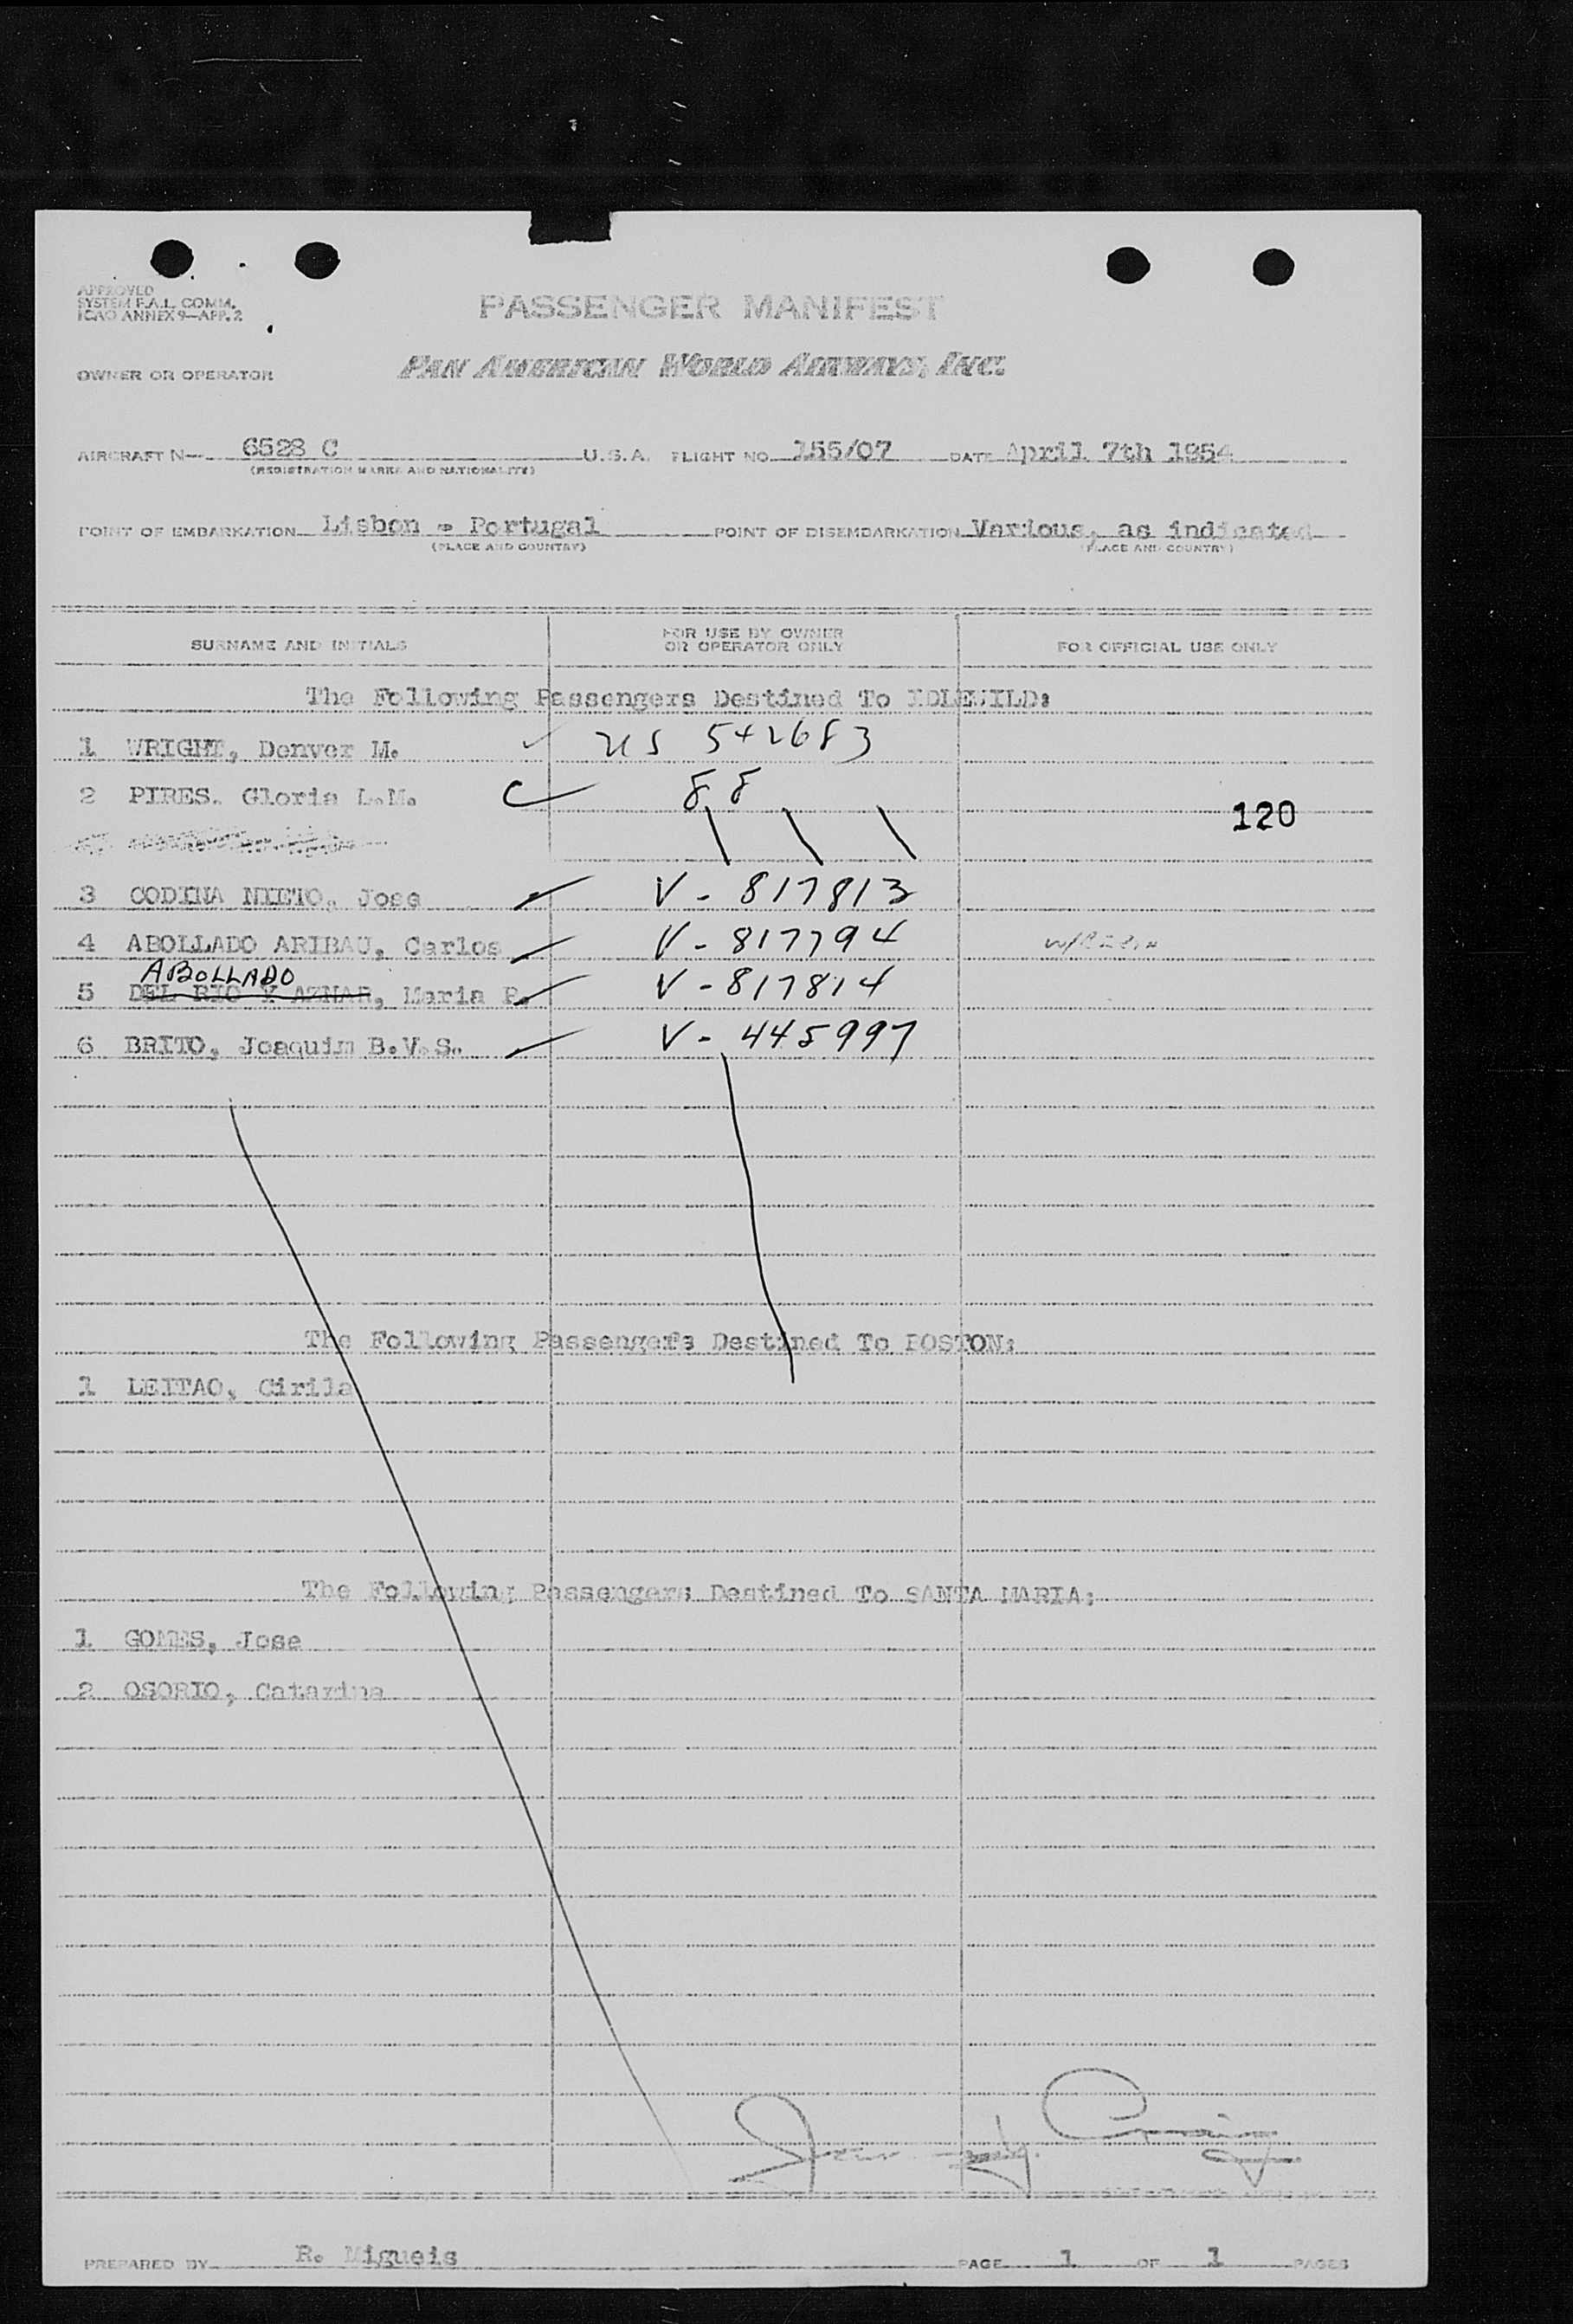 APPROVED
SYSTEM F.A.L. COMM.
ICAO ANNEX 9—APP. 2
PASSENGER MANIFEST
OWNER OR OPERATOR PAN AMERICAN WORLD AIRWAYS, INC.
AIRCRAFT N— 6528 C U.S.A. FLIGHT NO. 155/07 DATE April 7th 1954
(REGISTRATION MARKS AND NATIONALITY)
POINT OF EMBARKATION Lisbon - Portugal POINT OF DISEMBARKATION Various, as indicated
(PLACE AND COUNTRY) (PLACE AND COUNTRY)
SURNAME AND INITIALS FOR USE BY OWNER OR OPERATOR ONLY FOR OFFICIAL USE ONLY
The Following Passengers Destined To IDLEWILD:
1 WRIGHT, Denver M. US 542683
2 PIRES. Gloria L.M. C 88
120
3 CODINA NIETO, Jose V - 817813
4 ABOLLADO ARIBAU, Carlos V - 817794
ABOLLADO
5 DEL RIO Y AZNAR, Maria P. V - 817814
6 BRITO, Joaquim B.V.S. V - 445997
The Following Passengers Destined To BOSTON:
1 LEITAO, Cirila
The Following Passengers Destined To SANTA MARIA:
1 GOMES, Jose
2 OSORIO, Catarina
PREPARED BY R. Migueis PAGE 1 OF 1 PAGES